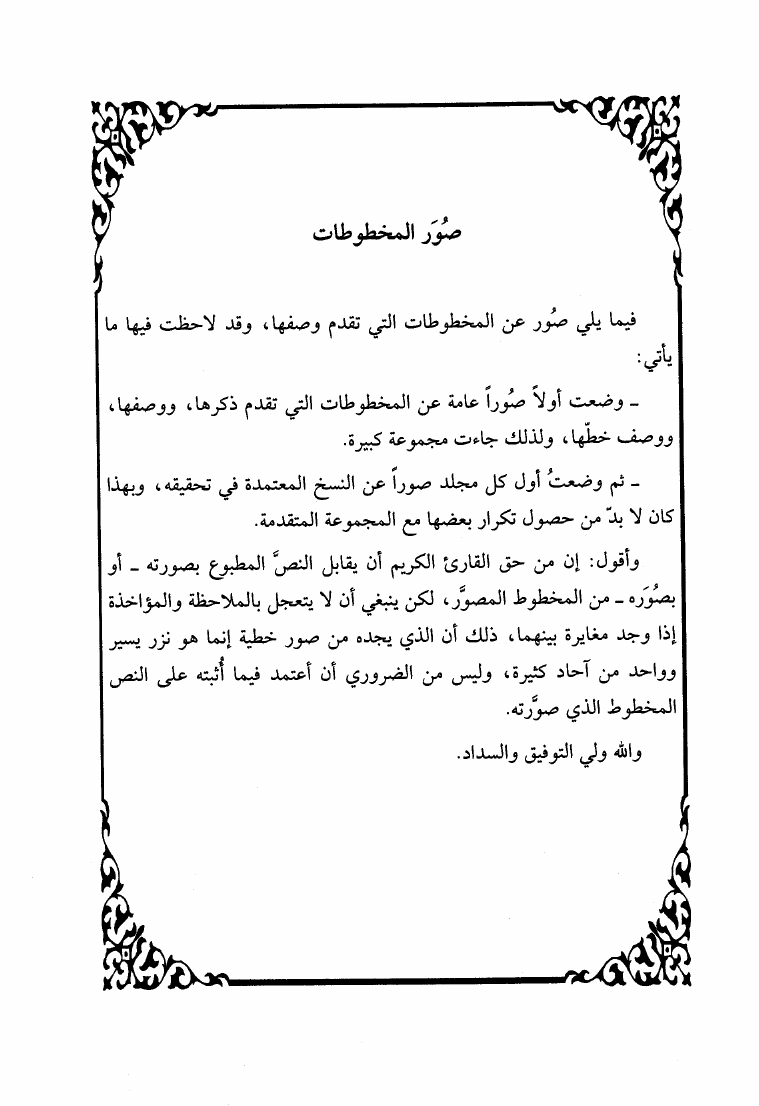 صُوَر المخطوطات
فيما يلي صُور عن المخطوطات التي تقدم وصفها، وقد لاحظت فيها ما
يأتي:
ـ وضعت أولاً صُوراً عامة عن المخطوطات التي تقدم ذكرها، ووصفها،
ووصف خطّها، ولذلك جاءت مجموعة كبيرة.
ـ ثم وضعتُ أول كل مجلد صوراً عن النسخ المعتمدة في تحقيقه، وبهذا
كان لا بدّ من حصول تكرار بعضها مع المجموعة المتقدمة.
وأقول: إن من حق القارئ الكريم أن يقابل النصَّ المطبوع بصورته ـ أو
بصُوَره ـ من المخطوط المصوَّر، لكن ينبغي أن لا يتعجل بالملاحظة والمؤاخذة
إذا وجد مغايرة بينهما، ذلك أن الذي يجده من صور خطية إنما هو نزر يسير
وواحد من آحاد كثيرة، وليس من الضروري أن أعتمد فيما أُثبته على النص
المخطوط الذي صوَّرته.
والله ولي التوفيق والسداد.